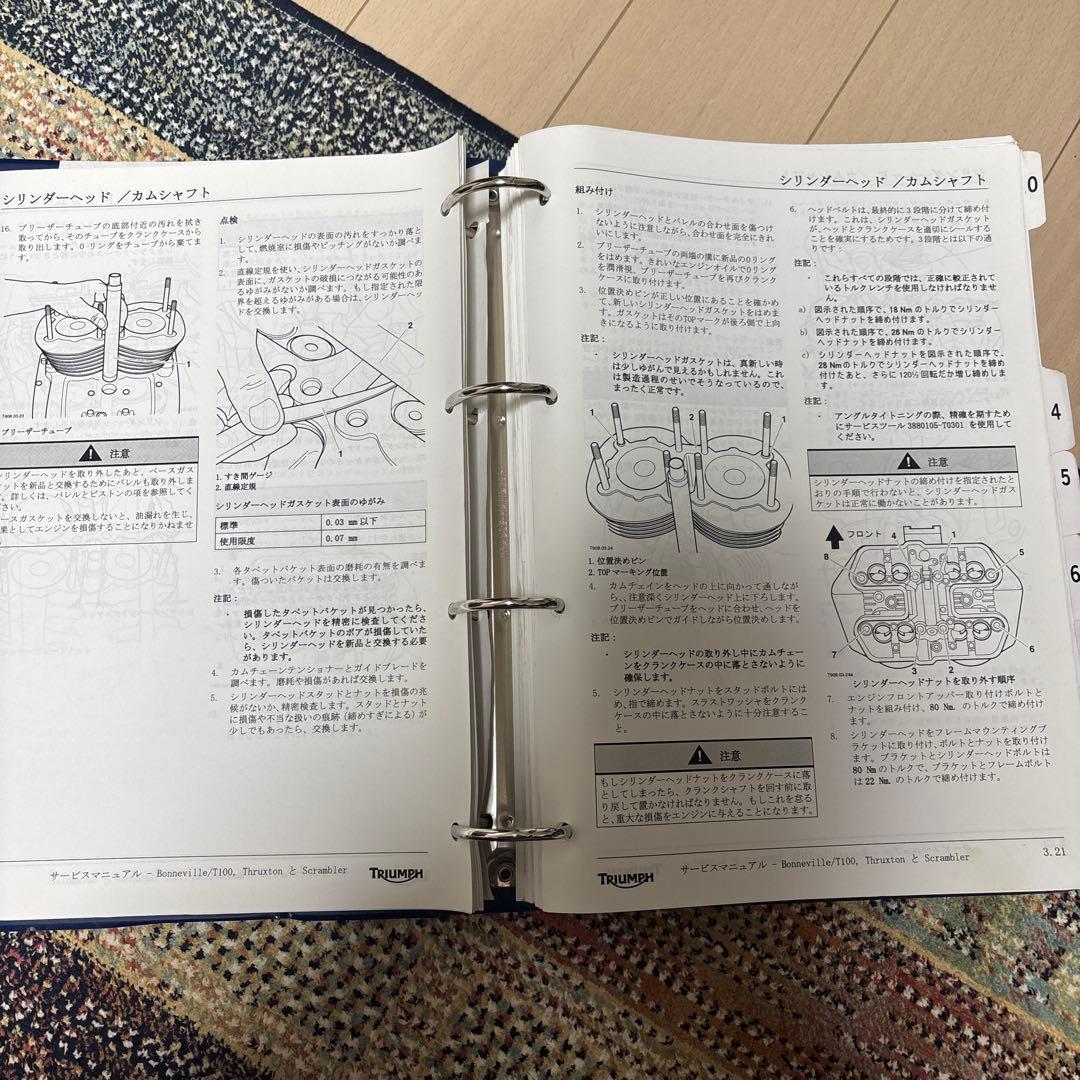 シリンダーヘッド /カムシャフト
16. ブリーザーチューブの底部付近の汚れを拭き
取ってから、そのチューブをクランクケースから
取り出します。O リングをチューブから棄てま
す。
1
T908.03.23
ブリーザーチューブ
注意
シリンダーヘッドを取り外したあと、ベースガス
ケットを新品と交換するためにバレルも取り外しま
す。詳しくは、バレルとピストンの項を参照してく
ださい。
ベースガスケットを交換しないと、油漏れを生じ、
結果としてエンジンを損傷することになりかねませ
ん。
点検
1. シリンダーヘッドの表面の汚れをすっかり落と
して、燃焼室に損傷やピッチングがないか調べま
す。
2. 直線定規を使い、シリンダーヘッドガスケットの
表面に、ガスケットの破損につながる可能性のあ
るゆがみがないか調べます。もし指定された限
界を超えるゆがみがある場合は、シリンダーヘッ
ドを交換します。
2
1
1. すき間ゲージ
2. 直線定規
シリンダーヘッドガスケット表面のゆがみ
標準 0.03 mm 以下
使用限度 0.07 mm
3. 各タペットバケット表面の磨耗の有無を調べま
す。傷ついたバケットは交換します。
注記:
・ 損傷したタペットバケットが見つかったら、
シリンダーヘッドを精密に検査してくださ
い。タペットバケットのボアが損傷していた
ら、シリンダーヘッドを新品と交換する必要
があります。
4. カムチェーンテンショナーとガイドブレードを
調べます。磨耗や損傷があれば交換します。
5. シリンダーヘッドスタッドとナットを損傷の兆
候がないか、精密検査します。スタッドとナット
に損傷や不当な扱いの痕跡（締めすぎによる）が
少しでもあったら、交換します。
サービスマニュアル - Bonneville/T100, Thruxton と Scrambler
TRIUMPH
シリンダーヘッド /カムシャフト
組み付け
1. シリンダーヘッドとバレルの合わせ面を傷つけ
ないように注意しながら、合わせ面を完全にきれ
いにします。
2. ブリーザーチューブの両端の溝に新品のOリング
をはめます。きれいなエンジンオイルでOリング
を潤滑後、ブリーザーチューブを再びクランク
ケースに取り付けます。
3. 位置決めピンが正しい位置にあることを確かめ
て、新しいシリンダーヘッドガスケットをはめま
す。ガスケットはそのTOPマークが後ろ側で上向
きになるように取り付けます。
注記:
・ シリンダーヘッドガスケットは、真新しい時
は少しゆがんで見えるかもしれません。これ
は製造過程のせいでそうなっているので、
まったく正常です。
1
2
1
T908.03.24
1. 位置決めピン
2. TOP マーキング位置
4. カムチェインをヘッドの上に向かって通しなが
ら、、注意深くシリンダーヘッド上に下ろします。
ブリーザーチューブをヘッドに合わせ、ヘッドを
位置決めピンでガイドしながら位置決します。
注記:
・ シリンダーヘッドの取り外し中にカムチェー
ンをクランクケースの中に落とさないように
確保します。
5. シリンダーヘッドナットをスタッドボルトには
め、指で締めます。スラストワッシャをクランク
ケースの中に落とさないように十分注意するこ
と。
注意
もしシリンダーヘッドナットをクランクケースに落
としてしまったら、クランクシャフトを回す前に取
り戻して置かなければなりません。もしこれを怠る
と、重大な損傷をエンジンに与えることになります。
6. ヘッドボルトは、最終的に３段階に分けて締め付
けます。これは、シリンダーヘッドガスケット
が、ヘッドとクランクケースを適切にシールする
ことを確実にするためです。３段階とは以下の通
りです:
注記:
・ これらすべての段階では、正確に較正されて
いるトルクレンチを使用しなければなりませ
ん。
a) 図示された順序で、18 Nmのトルクでシリンダー
ヘッドナットを締め付けます。
b) 図示された順序で、26 Nmのトルクでシリンダー
ヘッドナットを締め付けます。
c) シリンダーヘッドナットを図示された順序で、
28 Nmのトルクでシリンダーヘッドナットを締め
付けたあと、さらに 120° 回転だか増し締めしま
す。
注記:
・ アングルタイトニングの際、精確を期すため
にサービスツール 3880105-T0301 を使用して
ください。
注意
シリンダーヘッドナットの締め付けを指定されたと
おりの手順で行わないと、シリンダーヘッドガス
ケットは正常に働かないことがあります。
フロント
4
1
8
5
7
6
3
2
T908.03.24a
シリンダーヘッドナットを取り外す順序
7. エンジンフロントアッパー取り付けボルトと
ナットを組み付け、80 Nm. のトルクで締め付け
ます。
8. シリンダーヘッドをフレームマウンティングブ
ラケットに取り付け、ボルトとナットを取り付け
ます。ブラケットとシリンダーヘッドボルトは
80 Nm のトルクで、ブラケットとフレームボルト
は 22 Nm. のトルクで締め付けます。
TRIUMPH
サービスマニュアル - Bonneville/T100, Thruxton と Scrambler
3.21
0
4
5
6